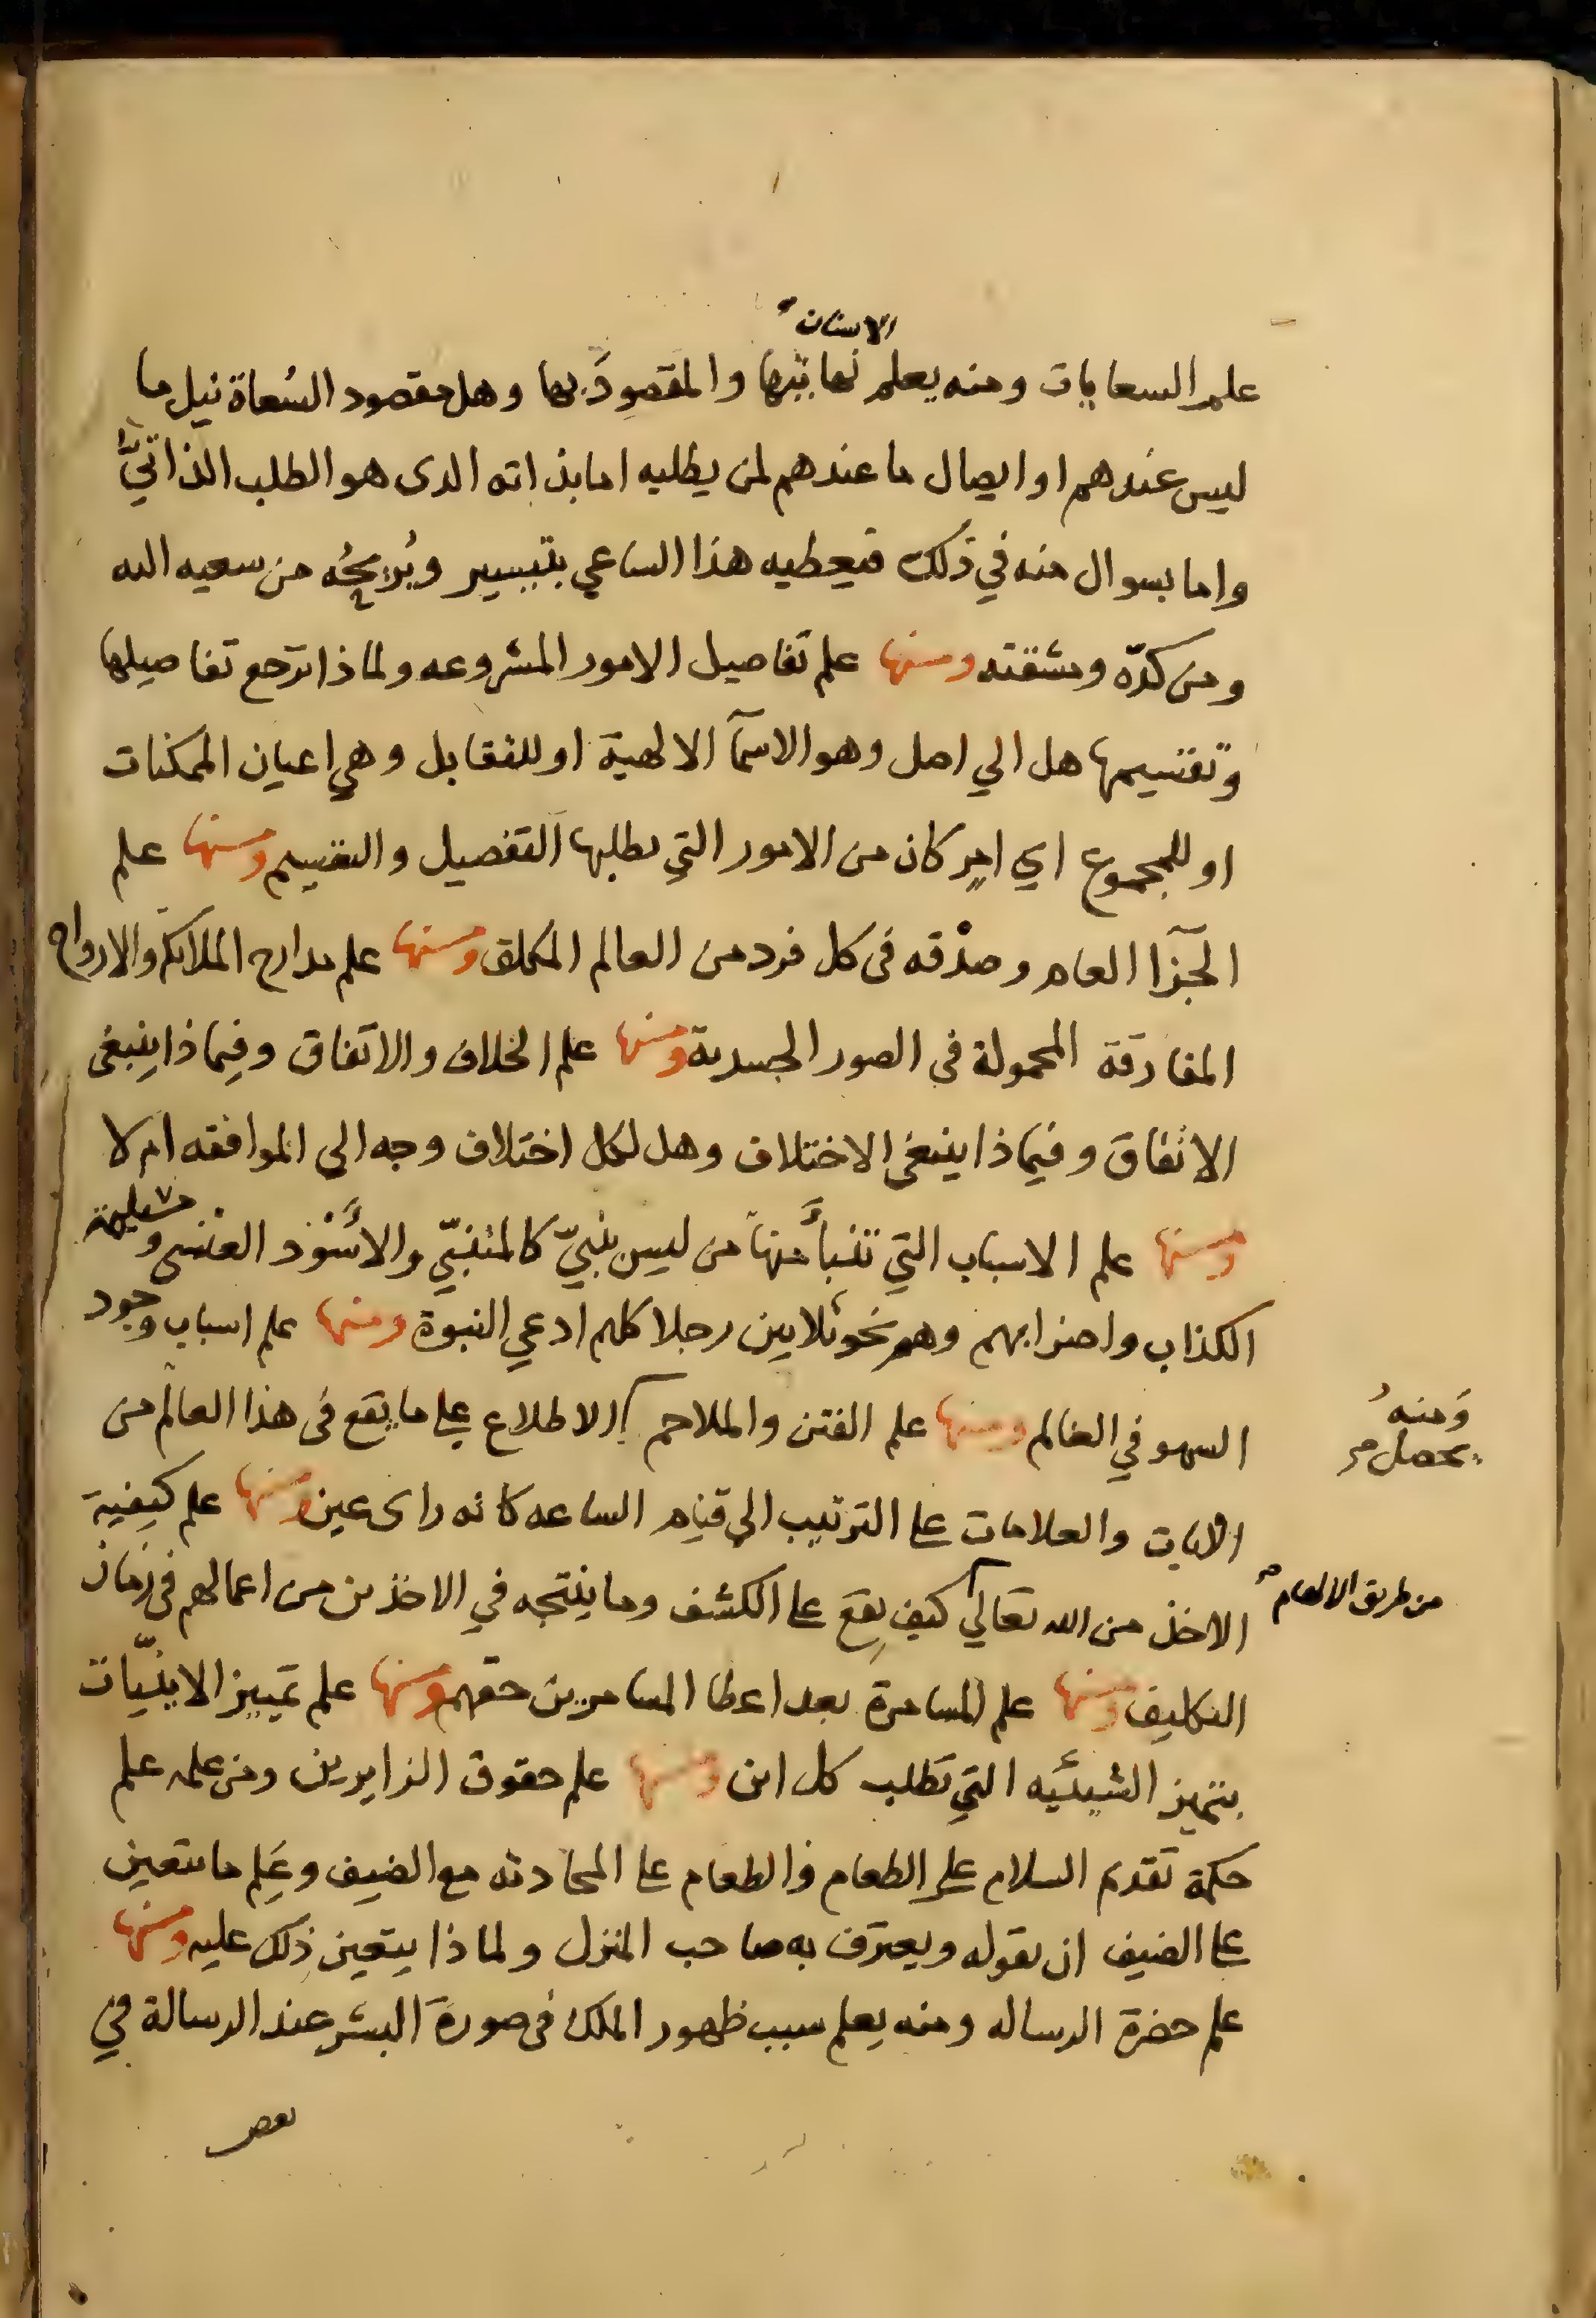 الانسان
علم السعايات ومنه يعلم نهايتها والمقصود بها وهل مقصود السُعاة نيل ما
ليس عندهم او ايصال ما عندهم لمن يطلبه اما بذاته الدى هو الطلب الذاتيّ
واما بسوال منه في ذلك فيعطيه هذا الساعي بتيسير ويُريحُه من سعيه اليه
ومن كدّه ومشقته ومنها علم تفاصيل الامور المشروعه ولماذا ترجع تفاصيلها
وتقسيمها هل الي اصل وهو الاسمآ الالهية او للقابل وهي اعيان الممكنات
او للمجموع اي امر كان من الامور التي يطلبها التفصيل والتقسيم ومنها علم
الجزآ العام وصدْقه فى كل فرد من العالم المكلف ومنها علم مدارج الملائكة والارواح
المفارقة المحمولة فى الصور الجسدية ومنها علم الخلاف والاتفاق وفيماذا ينبغى
الاتفاق وفيماذا ينبغى الاختلاف وهل لكل اختلاف وجه الي الموافقه ام لا
ومنها علم الاسباب التي تنبأ منها من ليس بنبيّ كالمتنبّي والأسْود العنسى ومسيلمة
الكذاب واضرابهم وهم نحو ثلاثين رجلا كلهم ادعي النبوة ومنها علم اسباب وجود
السهو في العالم ومنها علم الفتن والملاحم الاطلاع على ما يقع فى هذا العالم من
ومنهُ
يحصل
الايات والعلامات على الترتيب الي قيام الساعه كانه راى عين ومنها علم كيفية
الاخذ من الله تعالي كيف يقع على الكشف وما ينتجه في الاخذين من اعمالهم فى زمان
من طريق الالهام
التكليف ومنها علم المسامرة بعد اعطا المسامرين حقهم ومنها علم تمييز الاينيّات
بتميز الشيئيه التي تطلب كل اين ومنها علم حقوق الزايرين ومن علمه علم
حكمة تقدم السلام على الطعام والطعام على المحادثه مع الضيف وعلم ما يتعين
على الضيف ان يقوله ويعترف به صاحب المنزل ولماذا يتعين ذلك عليه ومنها
علم حضرة الرساله ومنه يعلم سبب ظهور الملك فى صورة البشر عند الرسالة في
بعض